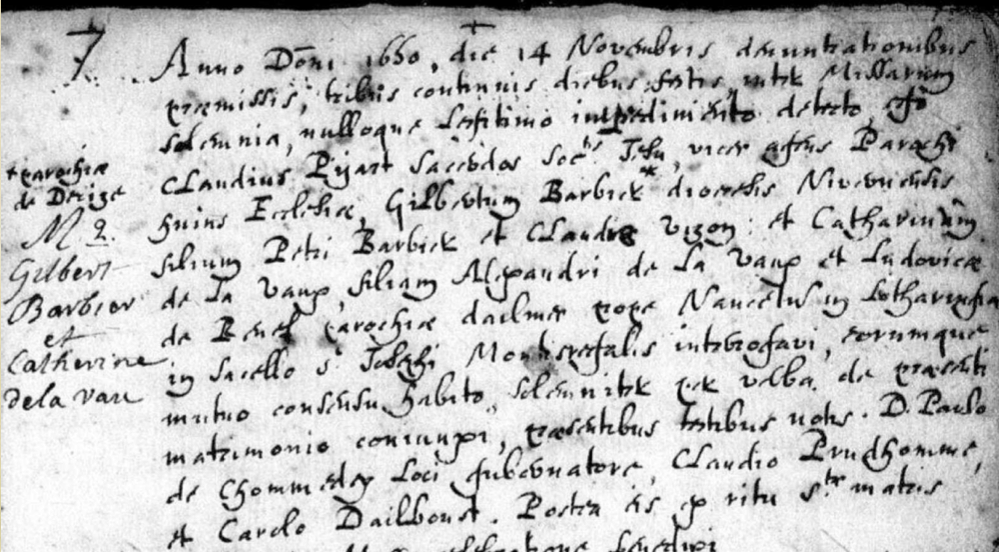 7
Anno Dōni 1650, die 14 Novembris denuntiationibus
præmissis, tribus continuis diebus festis inter Missarum
solemnia, nulloque legitimo impedimento detecto, ego
Claudius Pijart sacerdos Soc.tis Jesu, vices agens Parochi
huius Ecclesiæ, Gilbertum Barbier* diocesis Nivernensis
filium Petri Barbier et Claudæ Vizon: et Catharinam
de la Vaux, filiam Alexandri de la Vaux et Ludovicæ
de parochiæ prope Nanceium in Lotharingia
in sacello s. Josephi Montisregalis interrogavi, eorumque
mutuo consensu habito, solemniter per verba de præsenti
matrimonio coniunxi, præsentibus testibus notis. D. Paulo
de Chommedey Loci gubernatore, Claudio Prudhomme,
et Carolo Dailboust. Postea iis ex ritu s.tæ matris
benedixi
*parochiæ
de Dezize
M 2.
Gilbert
Barbier
et
Catherine
dela vau